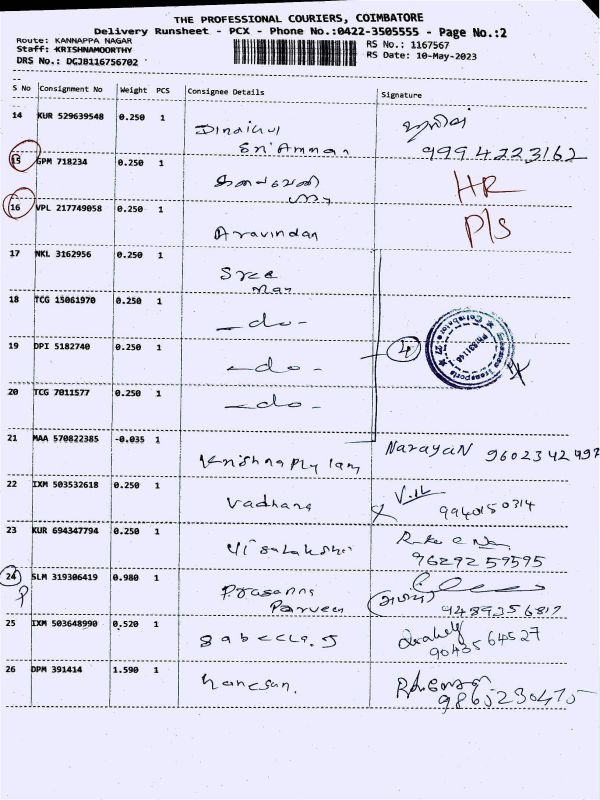 THE PROFESSIONAL COURIERS, COIMBATORE
Delivery Runsheet - PCX - Phone No.:0422-3505555 - Page No.:2
Route: KANNAPPA NAGAR
RS No.: 1167567
Staff: KRISHNAMOORTHY
RS Date: 10-May-2023
DRS No.: DCJB116756702
S No Consignment No Weight PCS Consignee Details Signature
14 KUR 529639548 0.250 1
Sri Amman 9994223162
15 GPM 718234 0.250 1 HR
16 VPL 217749058 0.250 1 Aravindan P/S
17 NKL 3162956 0.250 1 Sree
18 TCG 15061970 0.250 1 -do-
19 DPI 5182740 0.250 1 -do- 4
20 TCG 7011577 0.250 1 -do-
21 MAA 570822385 -0.035 1 Narayan
22 IXM 503532618 0.250 1 Vadhana 9940150314
23 KUR 694347794 0.250 1 Visalakshi 9629259595
24 SLM 319306419 0.980 1 Prasanna
Parveen
25 IXM 503648990 0.520 1 9043564527
26 DPM 391414 1.590 1 9865230475